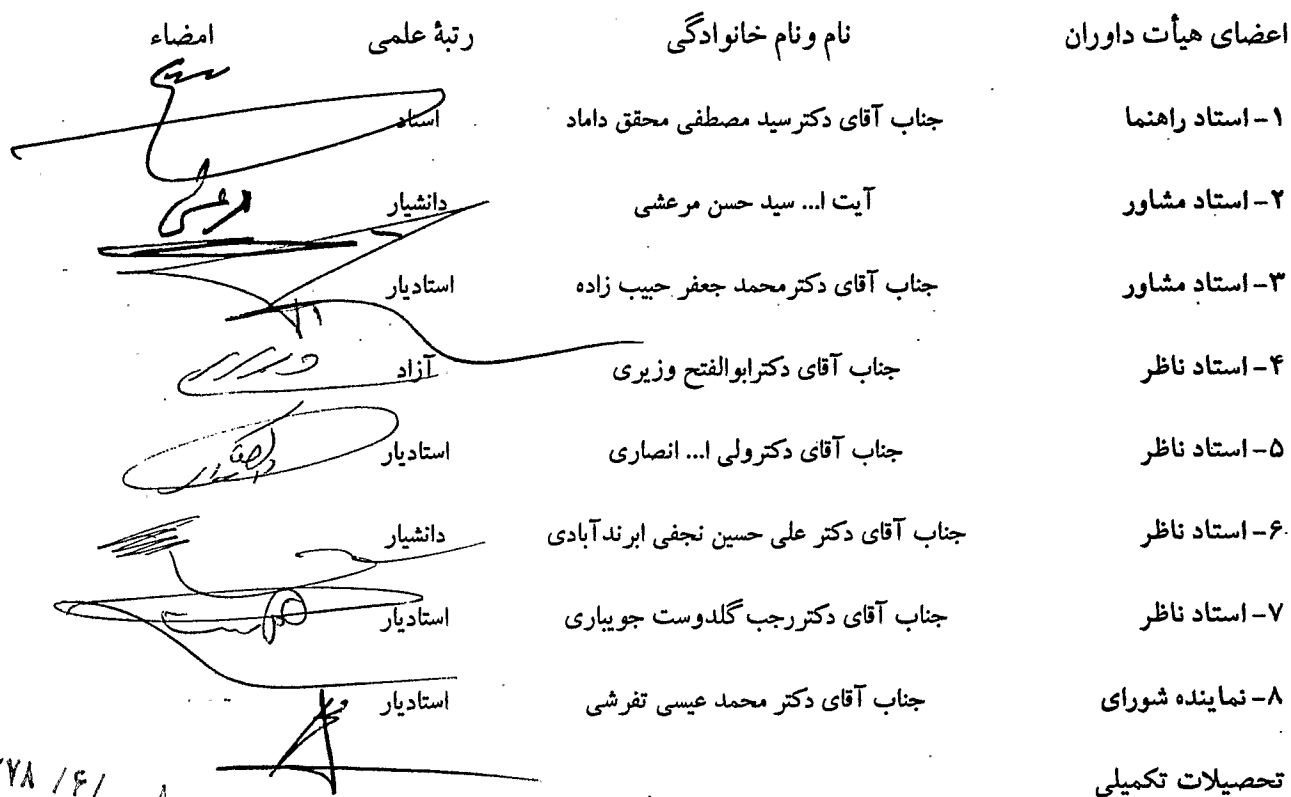 اعضای هیأت داوران نام ونام خانوادگی رتبهٔ علمی امضاء
۱- استاد راهنما جناب آقای دکترسید مصطفی محقق داماد استاد
۲- استاد مشاور آیت ا... سید حسن مرعشی دانشیار
۳- استاد مشاور جناب آقای دکترمحمد جعفر حبیب زاده استادیار
۴- استاد ناظر جناب آقای دکترابوالفتح وزیری آزاد
۵- استاد ناظر جناب آقای دکترولی ا... انصاری استادیار
۶- استاد ناظر جناب آقای دکتر علی حسین نجفی ابرندآبادی دانشیار
۷- استاد ناظر جناب آقای دکتررجب گلدوست جویباری استادیار
۸- نماینده شورای جناب آقای دکتر محمد عیسی تفرشی استادیار
تحصیلات تکمیلی